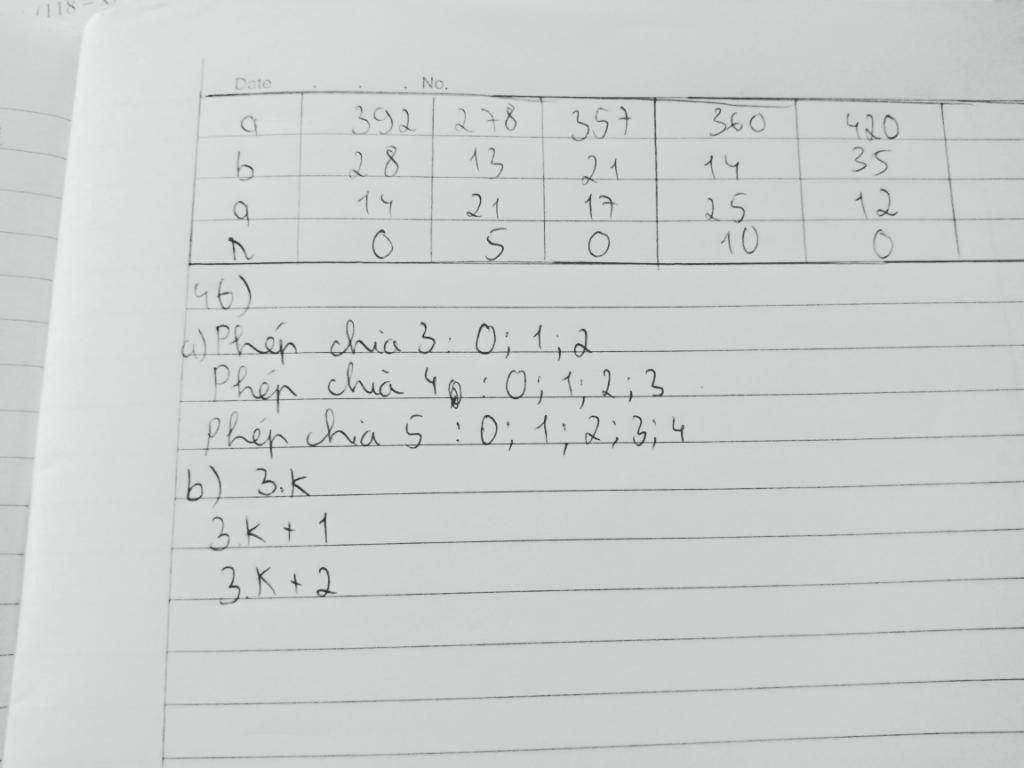 (118 - 8)
Date . . . No.
a 392 278 357 360 420
b 28 13 21 14 35
q 14 21 17 25 12
r 0 5 0 10 0
46)
a) Phép chia 3 : 0; 1; 2
Phép chia 4 : 0; 1; 2; 3
Phép chia 5 : 0; 1; 2; 3; 4
b) 3.K
3.K + 1
3.K + 2